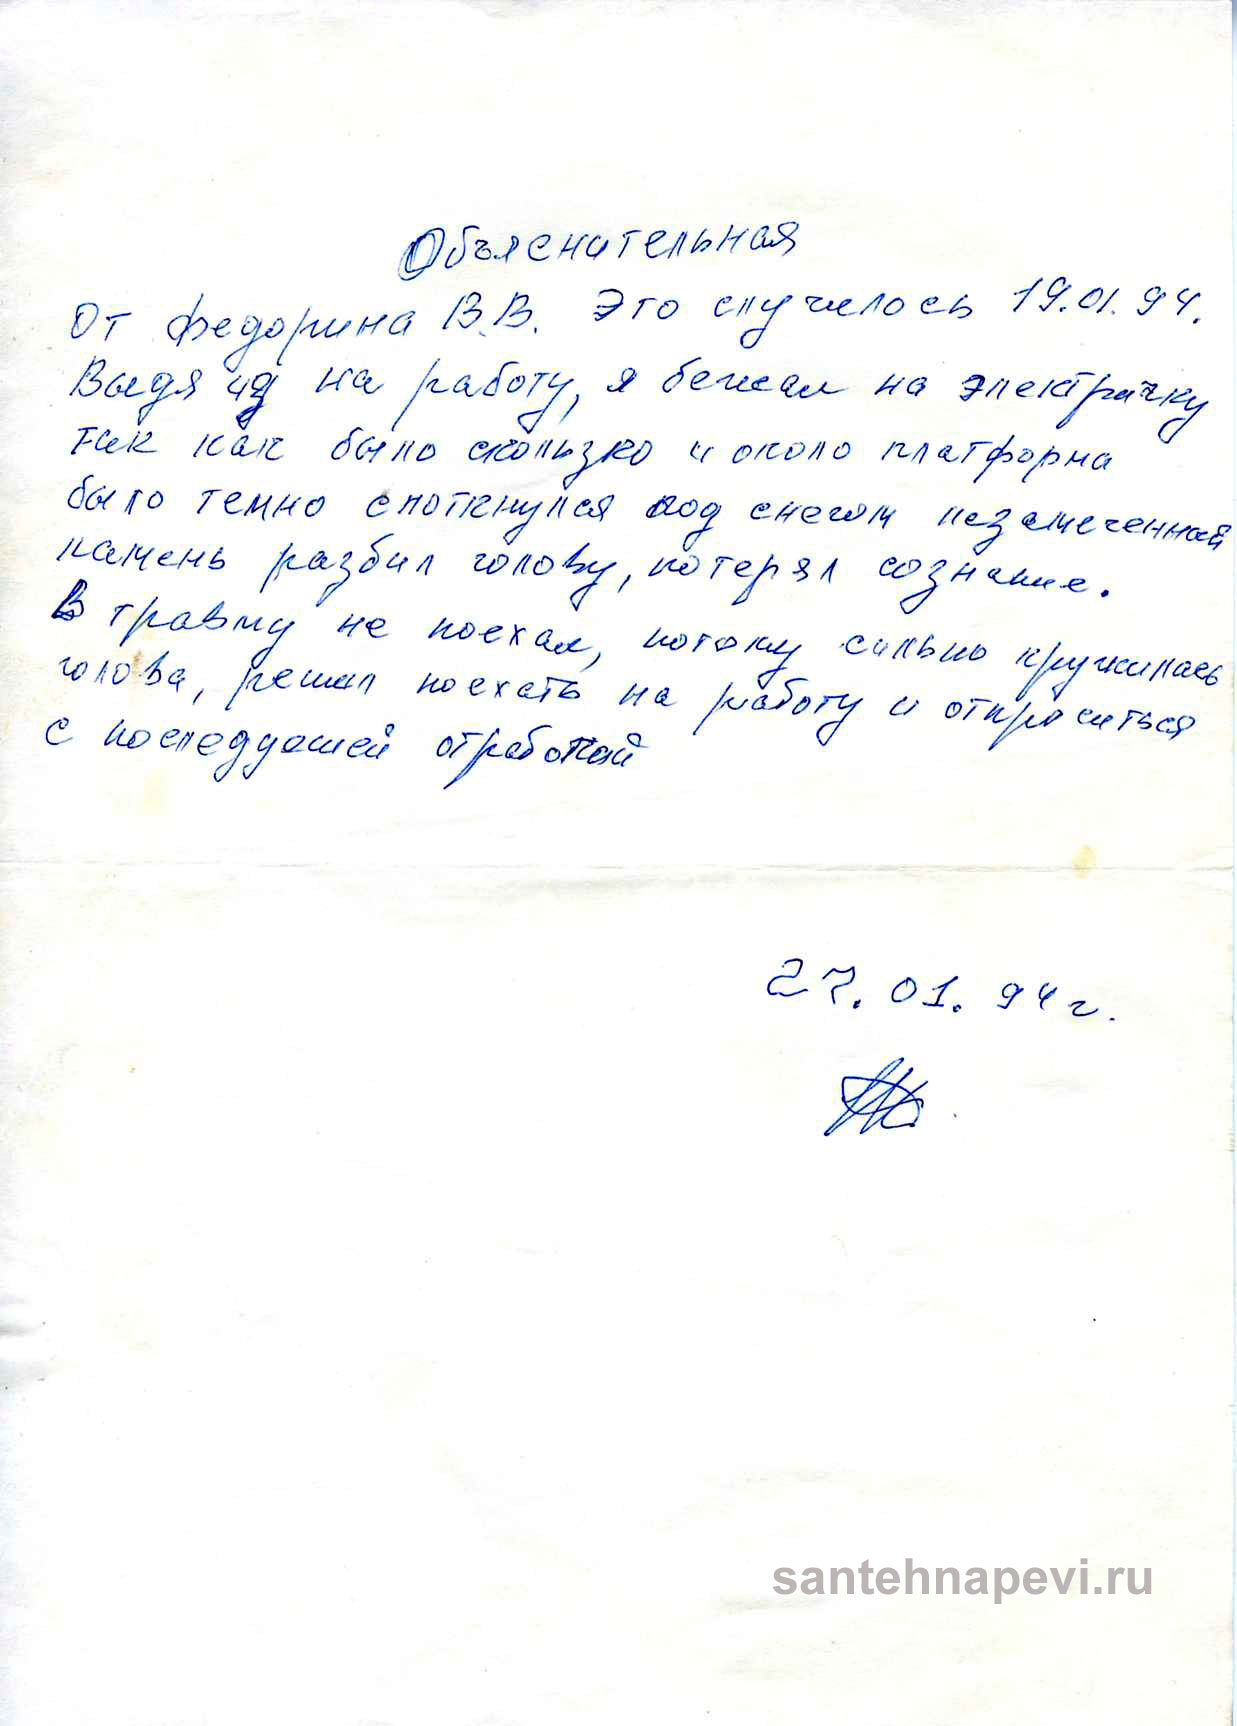 Объяснительная
От Федорина В.В. Это случилось 19.01.94.
Выдя на работу, я бежал на электричку
так как было скользко и около платформа
было темно споткнулся под снегом незамеченной
камень разбил голову, потерял сознание.
В травму не поехал, потому сильно кружилась
голова, решил поехать на работу и отпроситься
с последуюшей отработкой
27.01.94г.
santehnapevi.ru